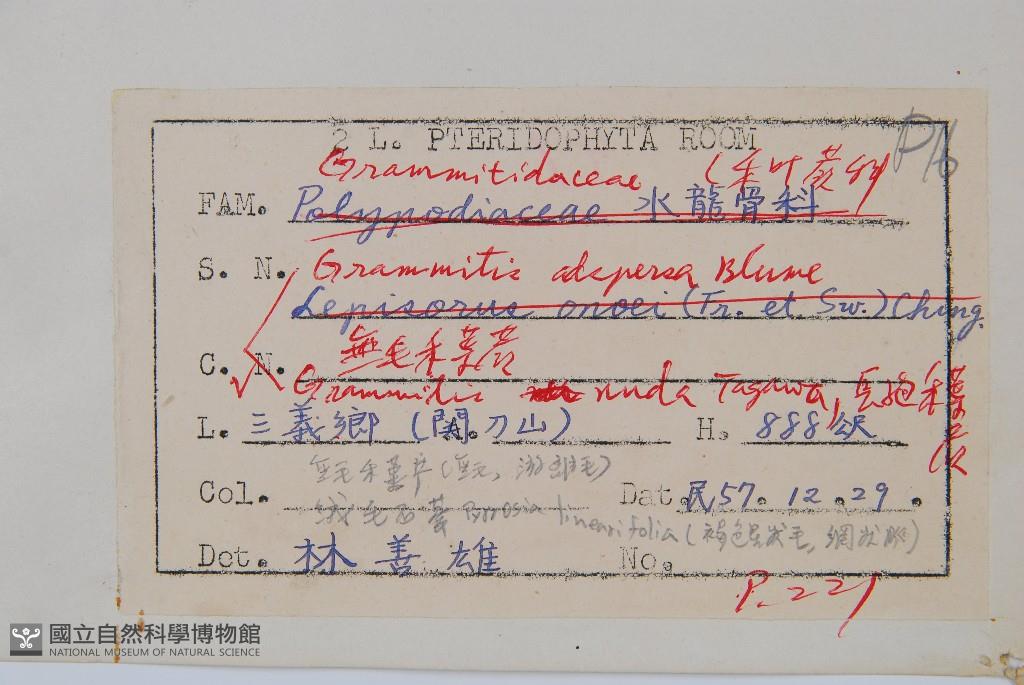 2 L. PTERIDOPHYTA ROOM
P16
Grammitidaceae (禾叶蕨科)
FAM. Polypodiaceae 水龍骨科
S. N. Grammitis adspersa Blume
Lepisorus onoei (Fr. et Sw.) Ching.
無毛禾葉蕨
C. N.
Grammitis nuda Tagawa, 長孢禾葉蕨
L. 三義鄉 (關刀山) A. H. 888公尺
無毛禾葉蕨
Col. Dat. 民57.12.29.
絨毛石葦 Pyrrosia linearifolia (褐色星狀毛, 網狀脈)
Det. 林善雄 No.
P.221
國立自然科學博物館
NATIONAL MUSEUM OF NATURAL SCIENCE